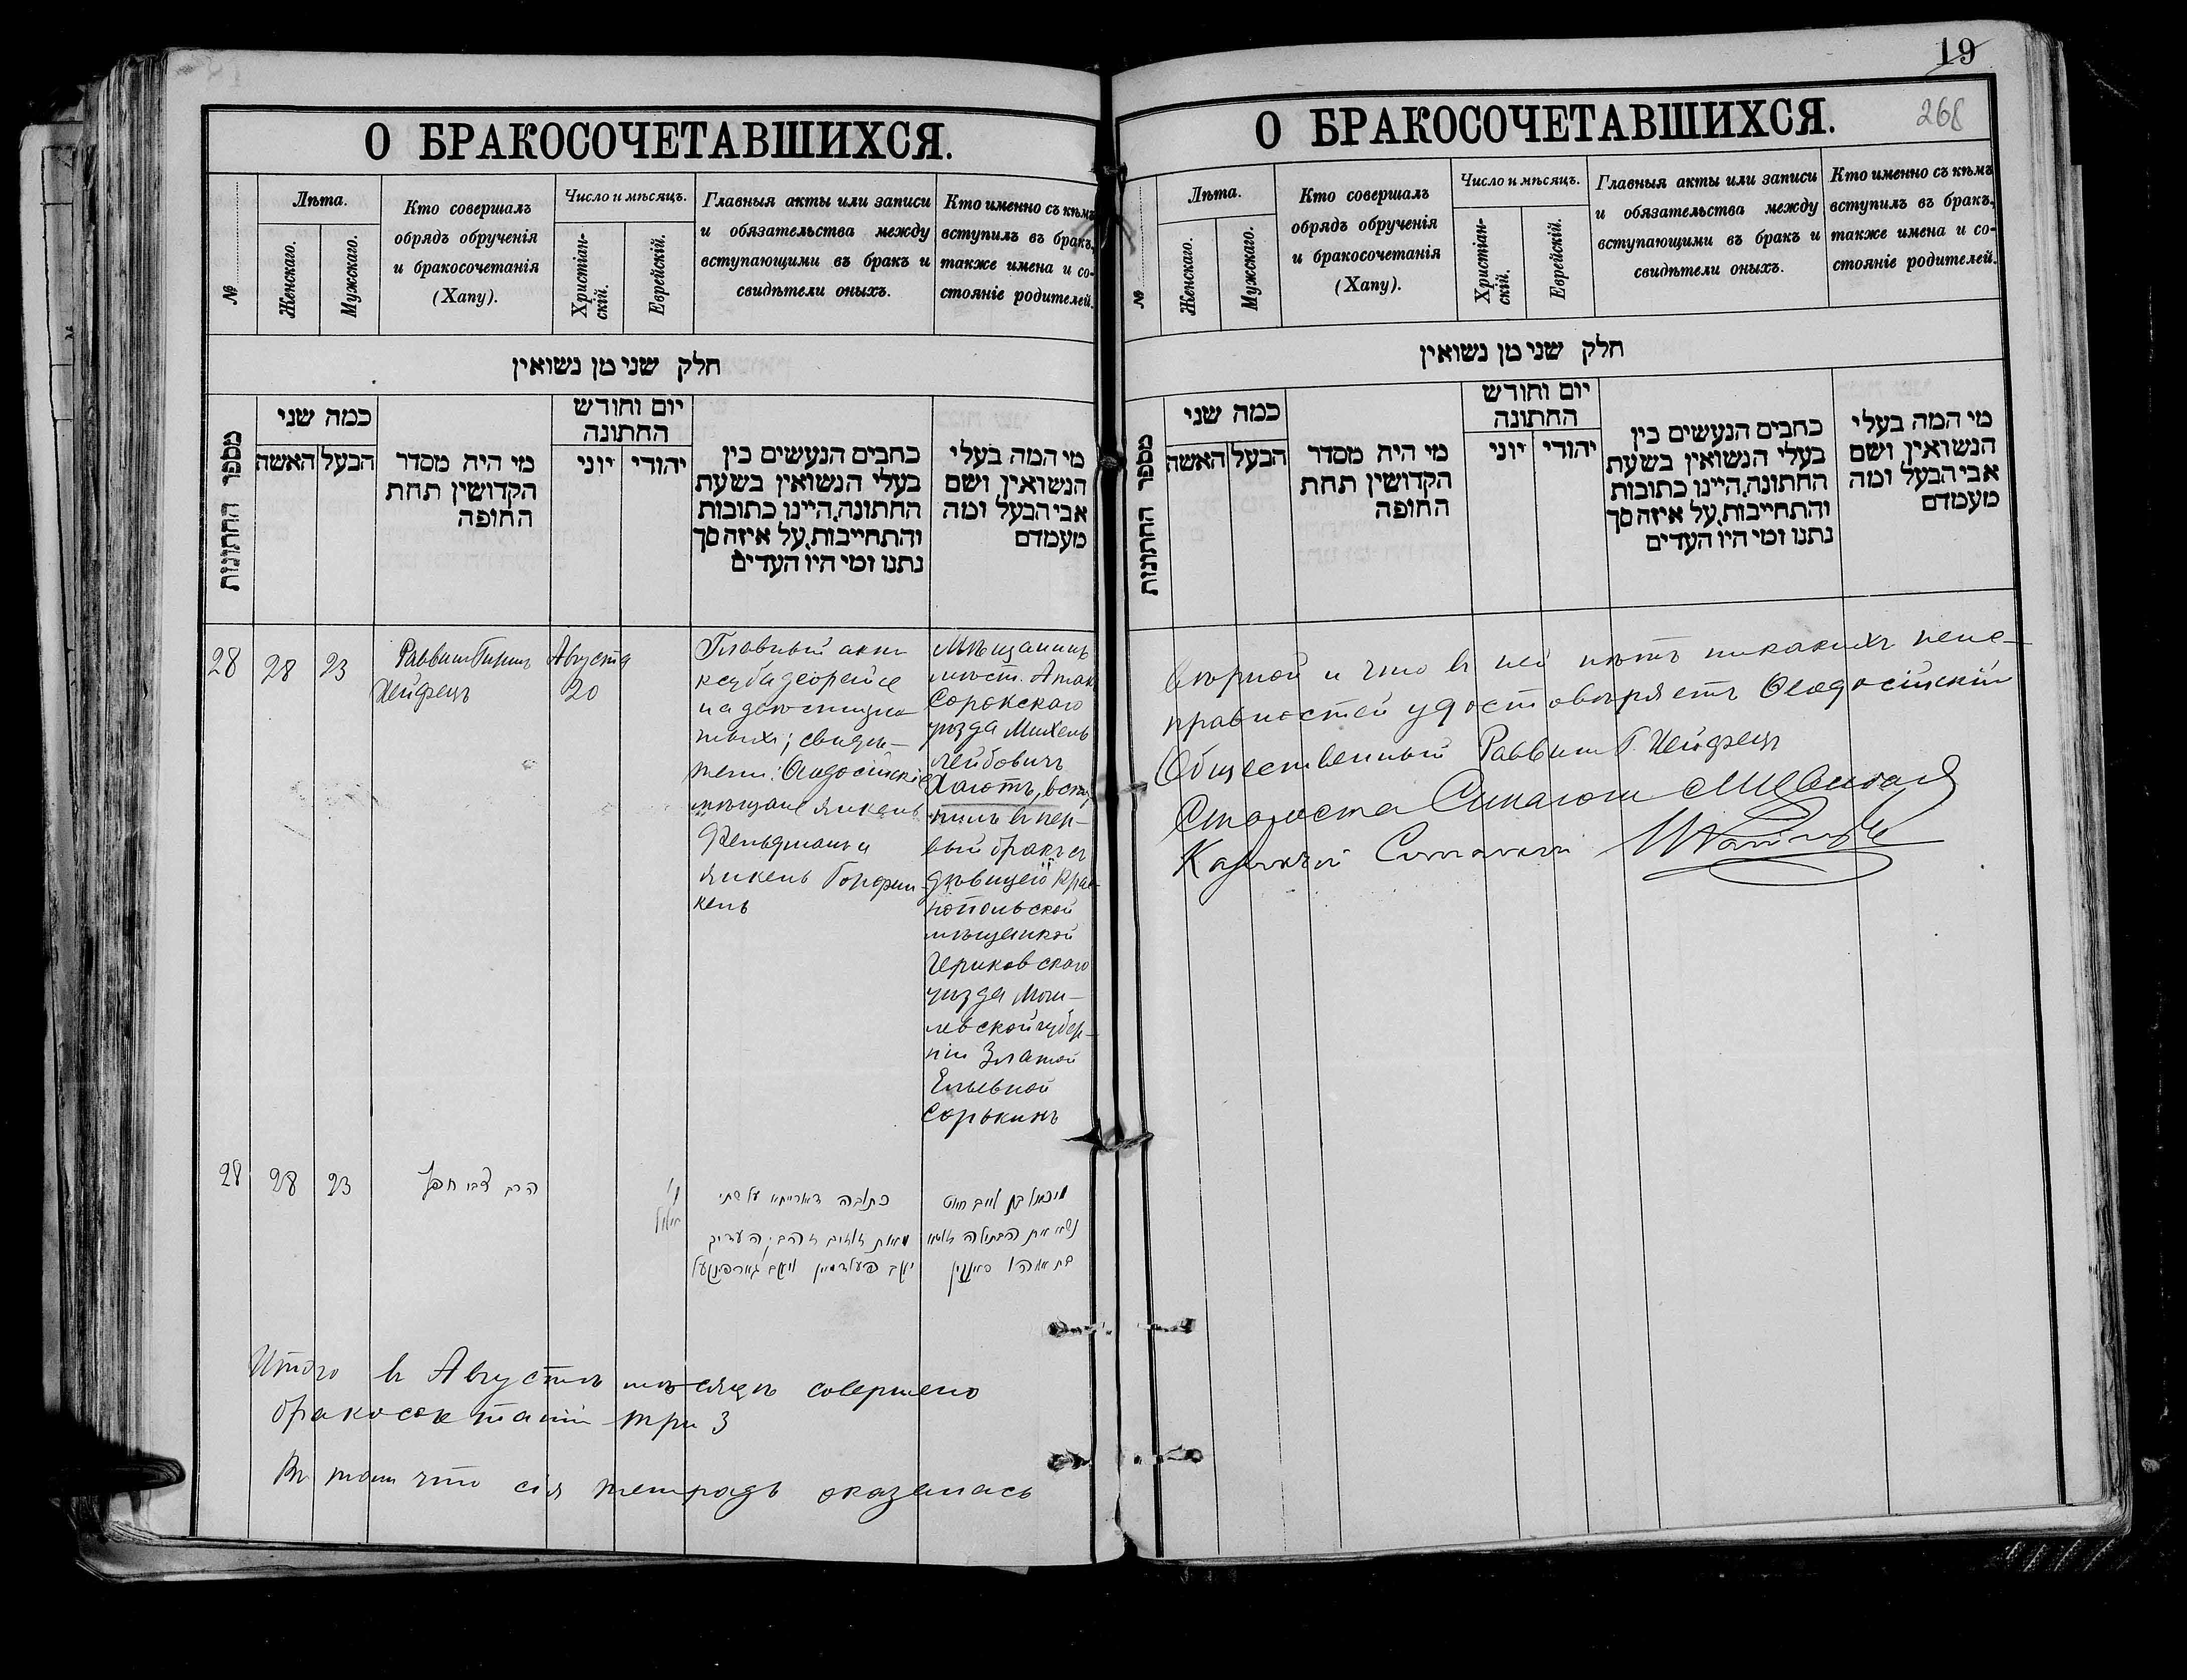 О БРАКОСОЧЕТАВШИХСЯ.
№
Лѣта.
Женскаго.
Мужскаго.
Кто совершалъ
обрядъ обрученія
и бракосочетанія
(Хапу).
Число и мѣсяцъ.
Христіан-
скій.
Еврейскій.
Главныя акты или записи
и обязательства между
вступающими въ бракъ и
свидѣтели оныхъ.
Кто именно съ кѣмъ
вступилъ въ бракъ,
также имена и со-
стояніе родителей.
חלק שני מן נשואין
מספר החתונות
כמה שני
האשה
הבעל
מי היה מסדר
הקדושין תחת
החופה
יום וחודש
החתונה
יוני
יהודי
כתבים הנעשים בין
בעלי הנשואין בשעת
החתונה,היינו כתובות
והתחייבות,על איזה סך
נתנו ומי היו העדים
מי המה בעלי
הנשואין ושם
אבי הבעל ומה
מעמדם
28
28
23
Раввинъ Гиршъ
Хейфецъ
Августа
20
Главный актъ
ксуба деорейсе
на
свидѣ-
тели: Ѳеодосійскіе
мѣщане Янкель
Фельдманъ и
Янкель Горфин-
кель
Мѣщанинъ
мѣст. Атакъ
Сорокскаго
уѣзда Михель
Лейбовичъ
Хаютъ, всту-
пилъ въ пер-
вый бракъ съ
дѣвицею Крас-
нопольской
мѣщанкой
Чериковскаго
уѣзда Моги-
левской губер-
ніи Златой
Сорькинъ
28
28
23
הרב צבי חפץ
כתובה דאורייתא על שתי
מאות זהב; העדים
יעקב פעלדמאן ויעקב גארפינקעל
מיכאל בן ליב חיות
נשא את הבתולה זלאטא
בת סארקין
Итого въ Августѣ мѣсяцѣ совершено
бракосочетаній три 3
Въ томъ что сія тетрадь оказалась
19
268
О БРАКОСОЧЕТАВШИХСЯ.
№
Лѣта.
Женскаго.
Мужскаго.
Кто совершалъ
обрядъ обрученія
и бракосочетанія
(Хапу).
Число и мѣсяцъ.
Христіан-
скій.
Еврейскій.
Главныя акты или записи
и обязательства между
вступающими въ бракъ и
свидѣтели оныхъ.
Кто именно съ кѣмъ
вступилъ въ бракъ,
также имена и со-
стояніе родителей.
חלק שני מן נשואין
מספר החתונות
כמה שני
האשה
הבעל
מי היה מסדר
הקדושין תחת
החופה
יום וחודש
החתונה
יוני
יהודי
כתבים הנעשים בין
בעלי הנשואין בשעת
החתונה,היינו כתובות
והתחייבות,על איזה סך
נתנו ומי היו העדים
מי המה בעלי
הנשואין ושם
אבי הבעל ומה
מעמדם
вѣрной и что въ ней нѣтъ никакихъ неис-
правностей удостовѣряетъ Ѳеодосійскій
Общественный Раввинъ Г. Хейфецъ
Староста Синагоги
Казначей Синагоги